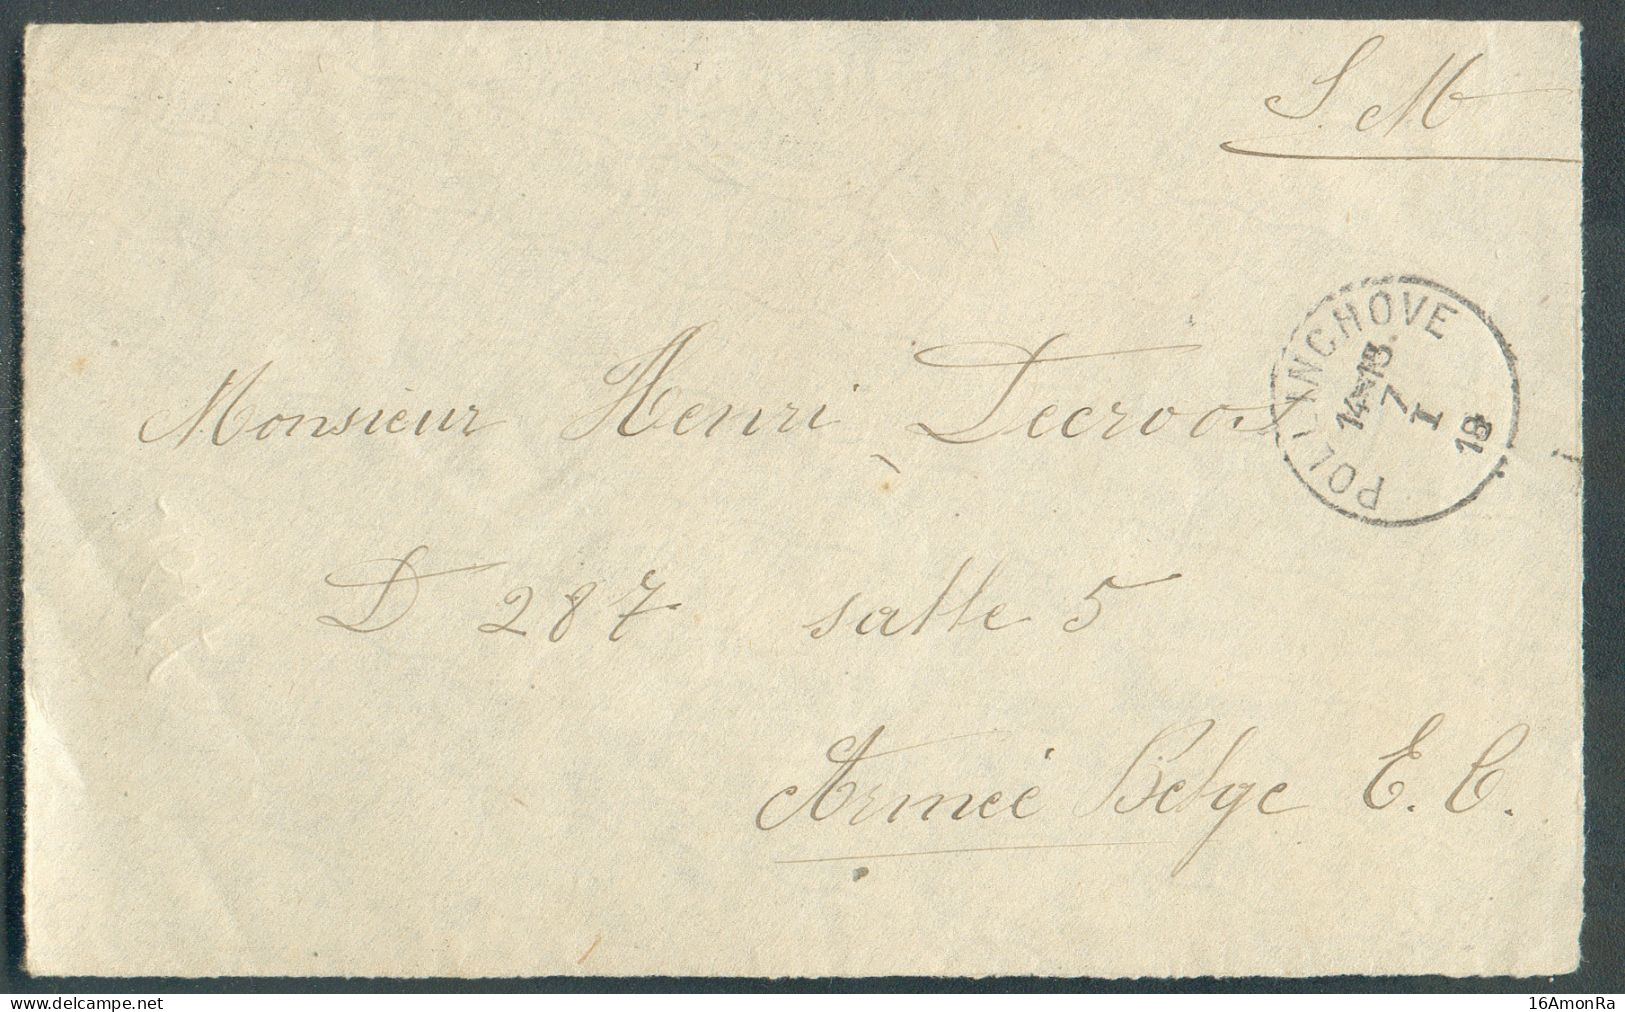 S. M
POLLINCHOVE
14-15
7
I
18
Monsieur Henri Decroos
D 287 salle 5
Armée Belge E. C.
www.delcampe.net
16AmonRa